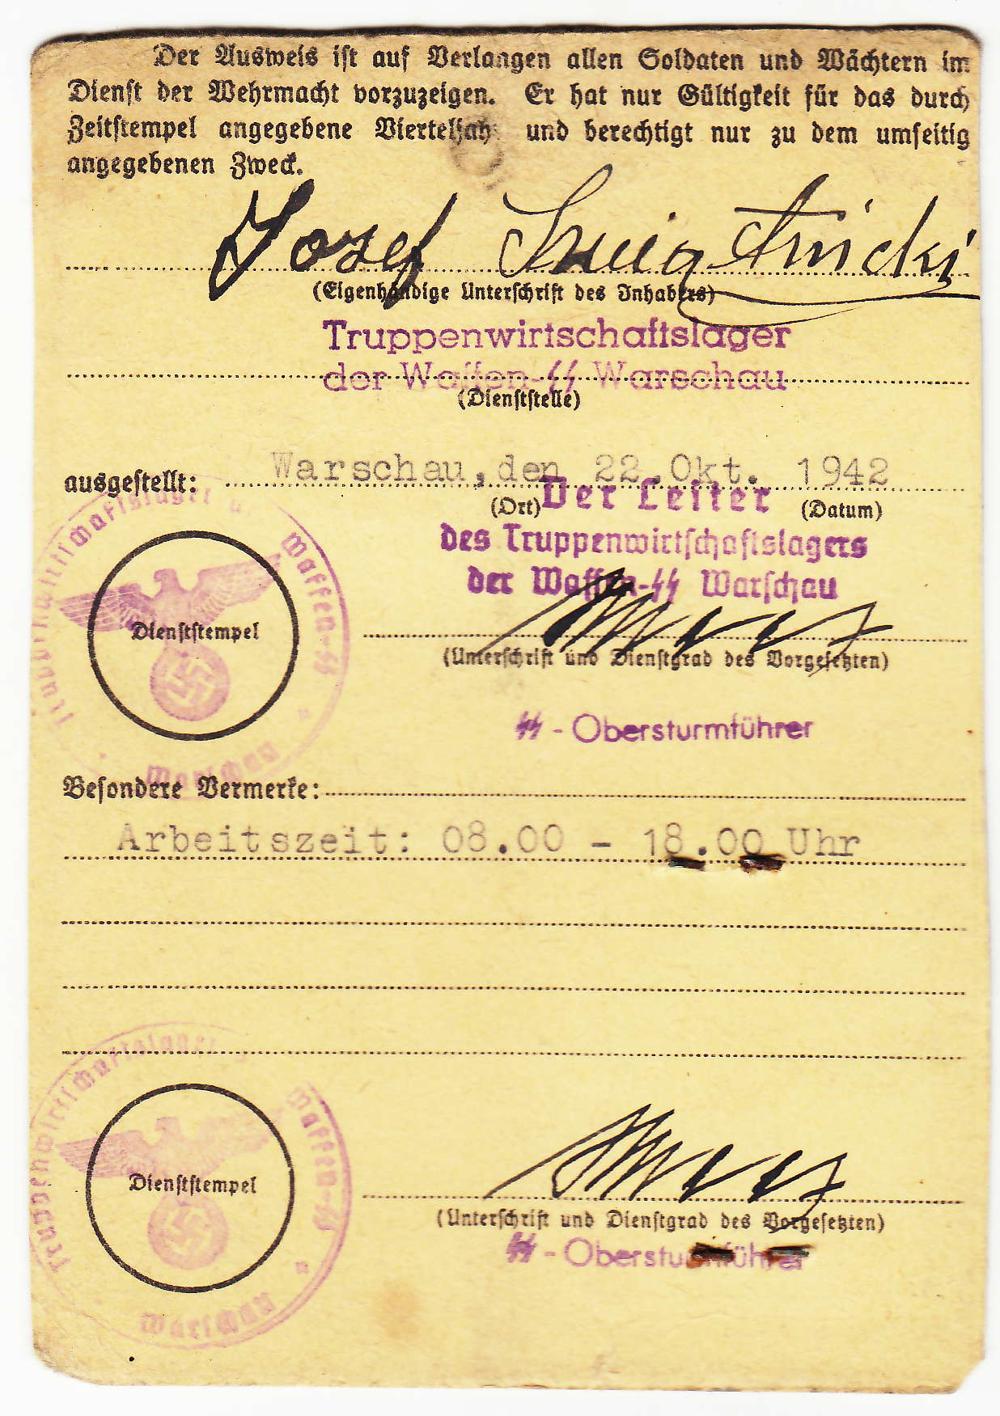 Der Ausweis ist auf Verlangen allen Soldaten und Wächtern im
Dienst der Wehrmacht vorzuzeigen. Er hat nur Gültigkeit für das durch
Zeitstempel angegebene Vierteljahr und berechtigt nur zu dem umseitig
angegebenen Zweck.
Jozef
(Eigenhändige Unterschrift des Inhabers)
Truppenwirtschaftslager
der Waffen-SS Warschau
(Dienststelle)
ausgestellt: Warschau, den 22. Okt. 1942
(Ort) (Datum)
Der Leiter
des Truppenwirtschaftslagers
der Waffen-SS Warschau
(Unterschrift und Dienstgrad des Vorgesetzten)
SS - Obersturmführer
Truppenwirtschaftslager d. Waffen-SS
Dienststempel
Warschau
Besondere Vermerke:
Arbeitszeit: 08.00 - 18.00 Uhr
Truppenwirtschaftslager d. Waffen-SS
Dienststempel
Warschau
(Unterschrift und Dienstgrad des Vorgesetzten)
SS - Obersturmführer